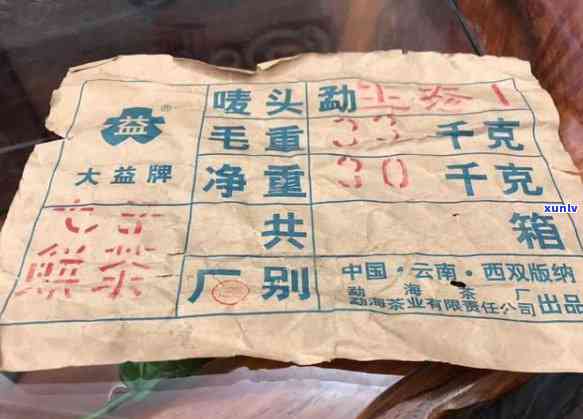 益
®
大益牌
唛头 勐
毛重 33 千克
净重 30 千克
七子
餅茶
共 箱
厂别
中国·云南·西双版纳
勐海茶厂
勐海茶业有限责任公司 出品
xunlv